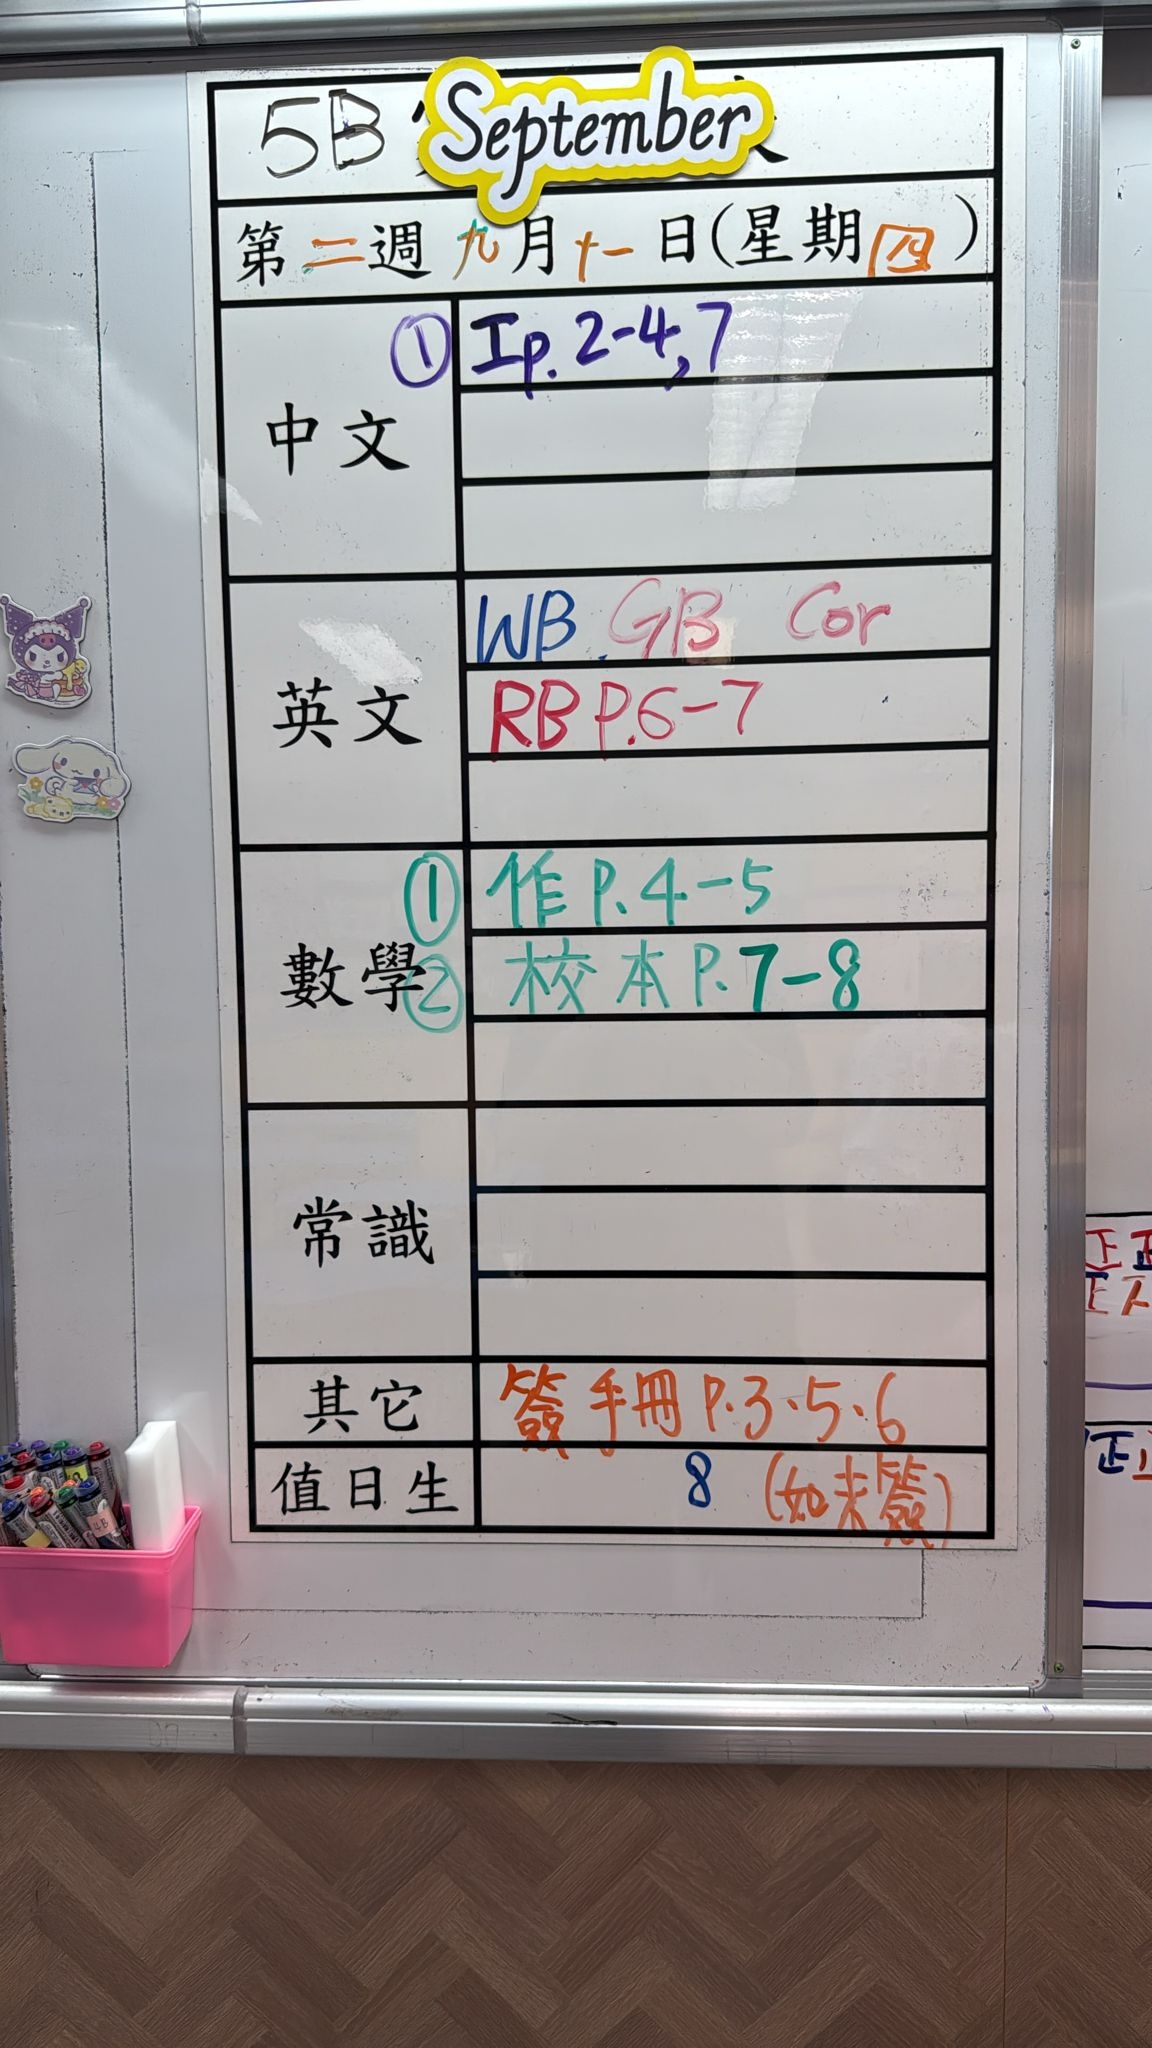 5B
September
第二週 九月十一日(星期四)
中文
① 工p.2-4,7
英文
WB. GB Cor
RB P.6-7
數學
① 作 P.4-5
② 校本 P.7-8
常識
其它
簽手冊 P.3、5、6
值日生
8 (如未簽)
正
正